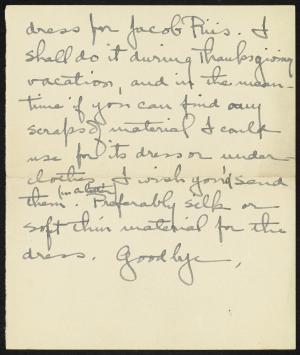 dress for Jacob Riis. I
shall do it during Thanksgiving
vacation, and in the mean-
time if you can find any
scraps of material I could
use for its dress or under-
clothes, I wish you'd send
them. Preferably silk or
soft thin material for the
dress. Goodbye,